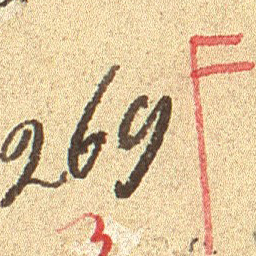 269 F
3